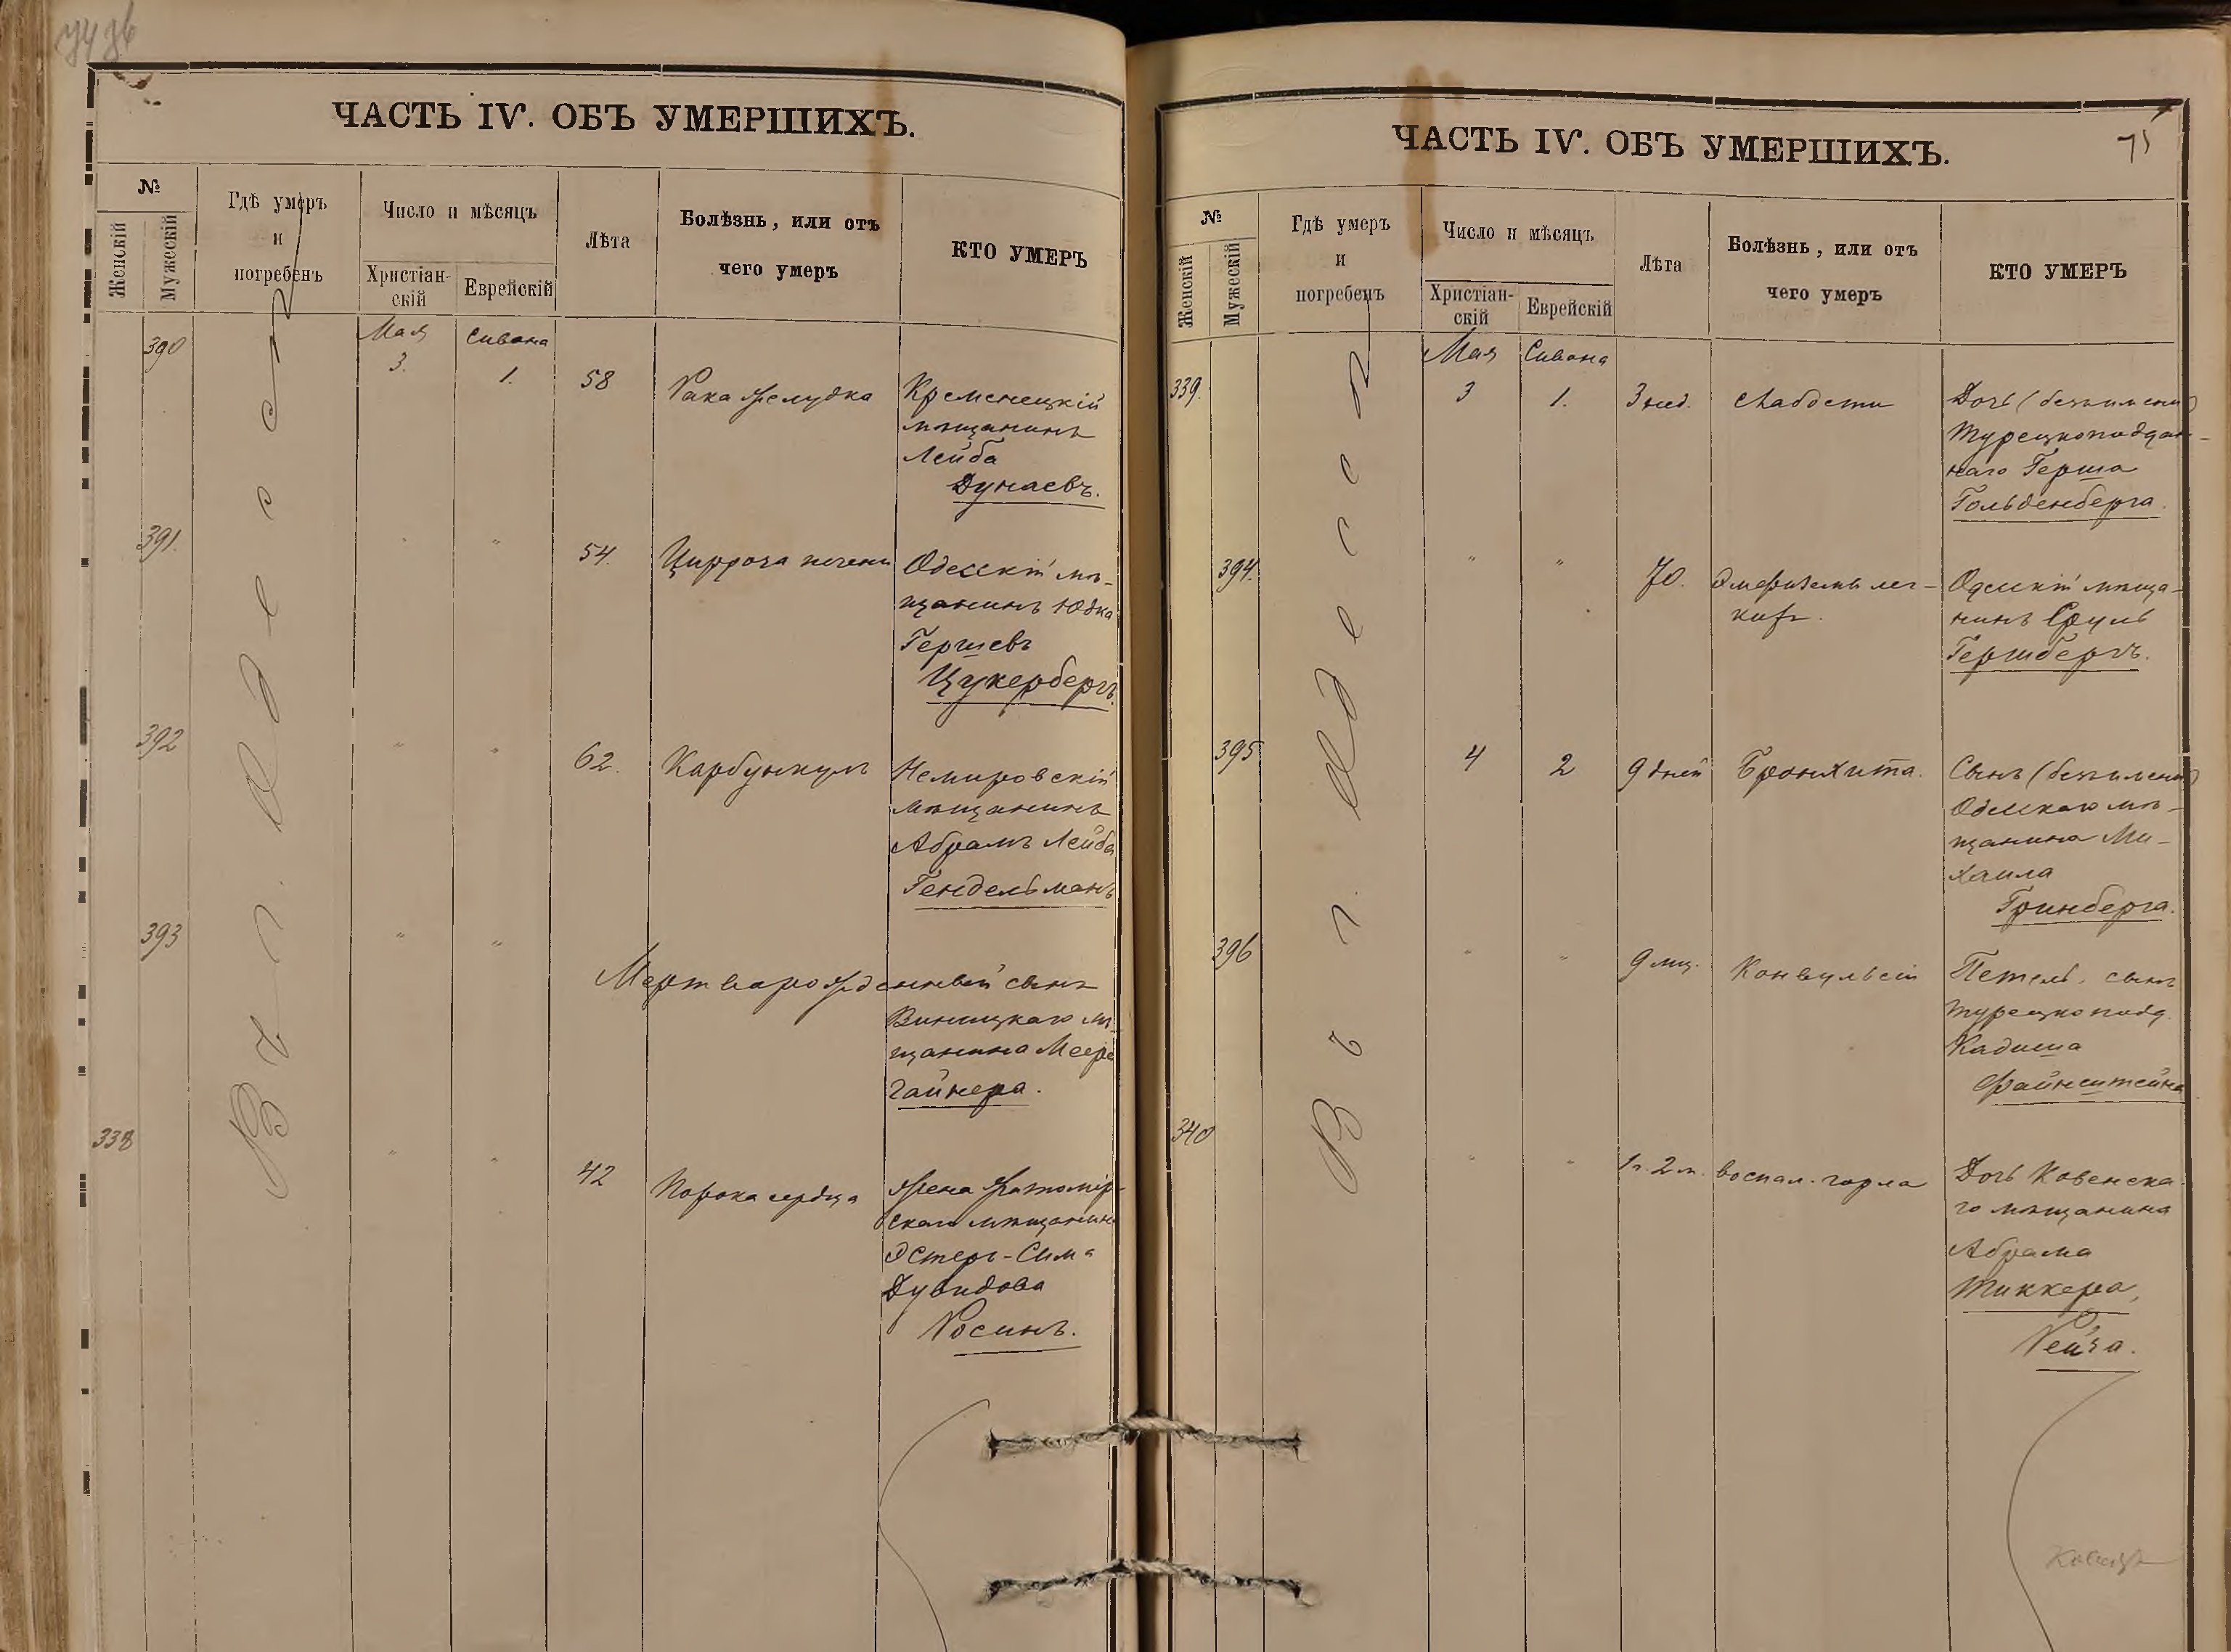 ЧАСТЬ IV. ОБЪ УМЕРШИХЪ.
№
Женскій
Мужескій
Гдѣ умеръ
и
погребенъ
Число и мѣсяцъ
Христіан-
скій
Еврейскій
Лѣта
Болѣзнь, или отъ
чего умеръ
КТО УМЕРЪ
Въ г. Одессѣ
Мая Сивана
390 3. 1. 58 Рака желудка Кременецкій
мѣщанинъ
Лейба
Дунаевъ.
391. " " 54. Цирроза печени Одесскій мѣ-
щанинъ Юдка
Гершевъ
Цукербергъ.
392 " " 62. Карбункулъ Немировскій
мѣщанинъ
Абрамъ Лейба
Гендельманъ
393 " "
Мертворожденный сынъ
Виницкаго мѣ-
щанина Меера
Гайнера.
338 " " 42 Порока сердца Жена Житомір-
скаго мѣщанина
Эстеръ-Сима
Дувидова
Росинъ.
ЧАСТЬ IV. ОБЪ УМЕРШИХЪ.
75
№
Женскій
Мужескій
Гдѣ умеръ
и
погребенъ
Число и мѣсяцъ
Христіан-
скій
Еврейскій
Лѣта
Болѣзнь, или отъ
чего умеръ
КТО УМЕРЪ
Въ г. Одессѣ
Мая Сивана
339. 3 1. 3 нед. Слабости Дочь (безъ имени)
Турецкоподдан-
наго Герша
Гольденберга.
394. " " 70. Эмфиземы лег-
кихъ. Одесскій мѣща-
нинъ Сруль
Гершбергъ.
395 4 2 9 дней Бронхита. Сынъ (безъ имени)
Одесскаго мѣ-
щанина Ми-
хаила
Гринберга.
396 " " 9 мц. Конвульсій Петель, сынъ
Турецкоподд.
Кадиша
Файнштейна
340 " " 1 г. 2 м. воспал. горла Дочь Ковенска-
го мѣщанина
Абрама
Тиккера,
Рейза.